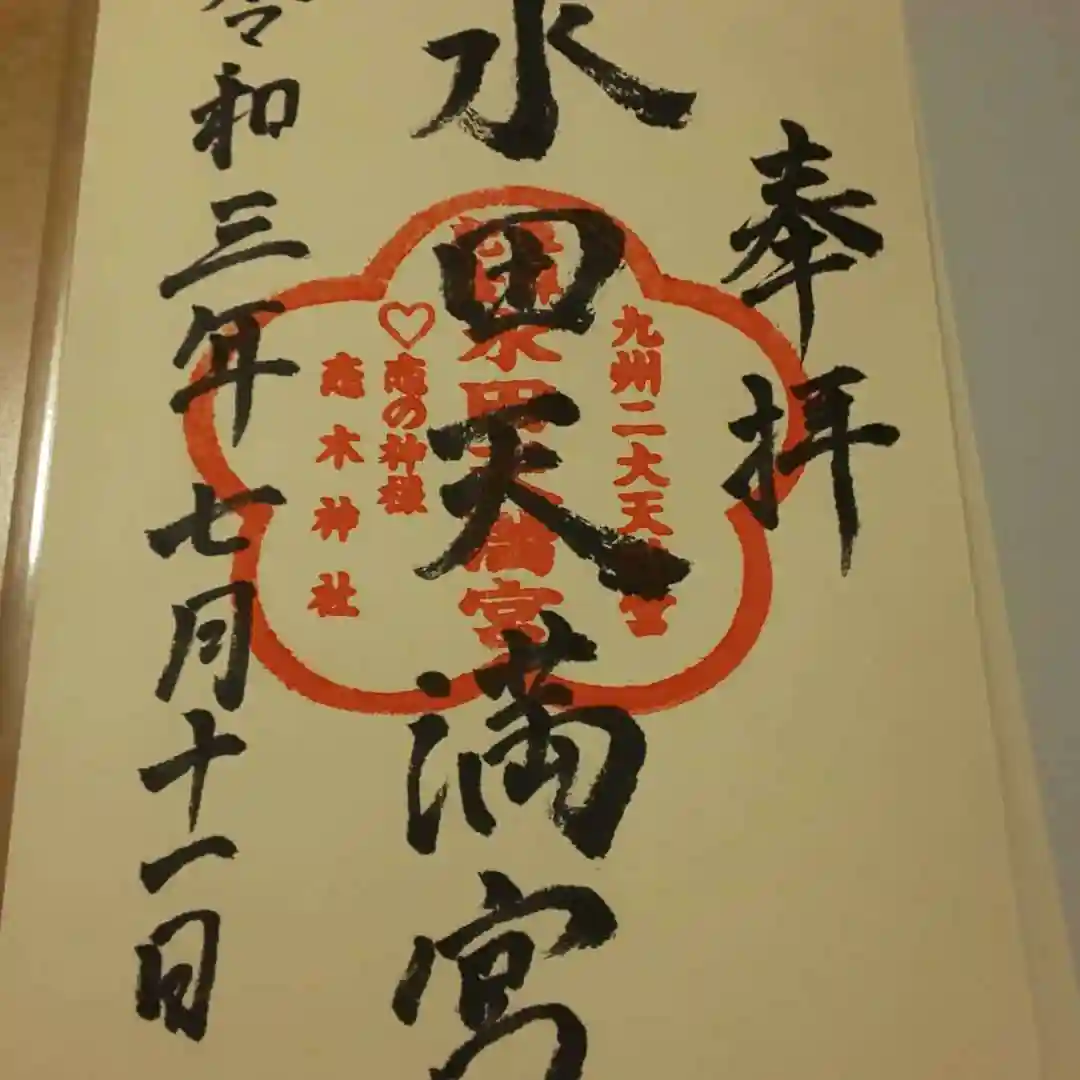 奉拝
九州二大天満宮
水田天満宮
水田天満宮
♡恋の神様
恋木神社
令和三年七月十一日